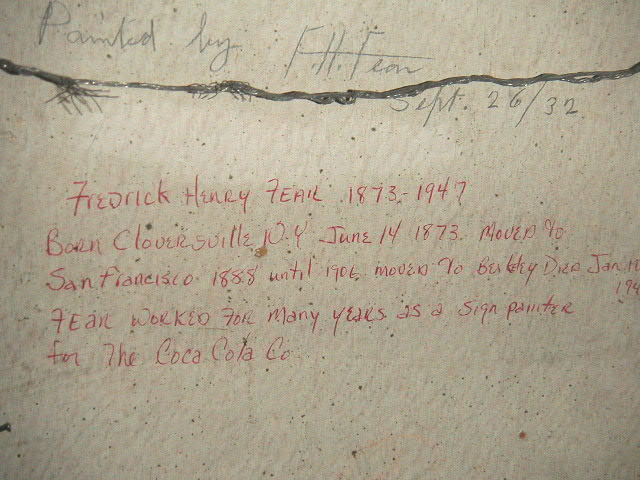 Painted by F.H. Fear
Sept. 26/32
Fredrick Henry Fear 1873-1947
Born Cloversville N.Y June 14 1873. Moved to
San Francisco 1888 until 1906 moved to Berkley Died Jan
194
Fear worked for many years as a sign painter
for The Coca Cola Co